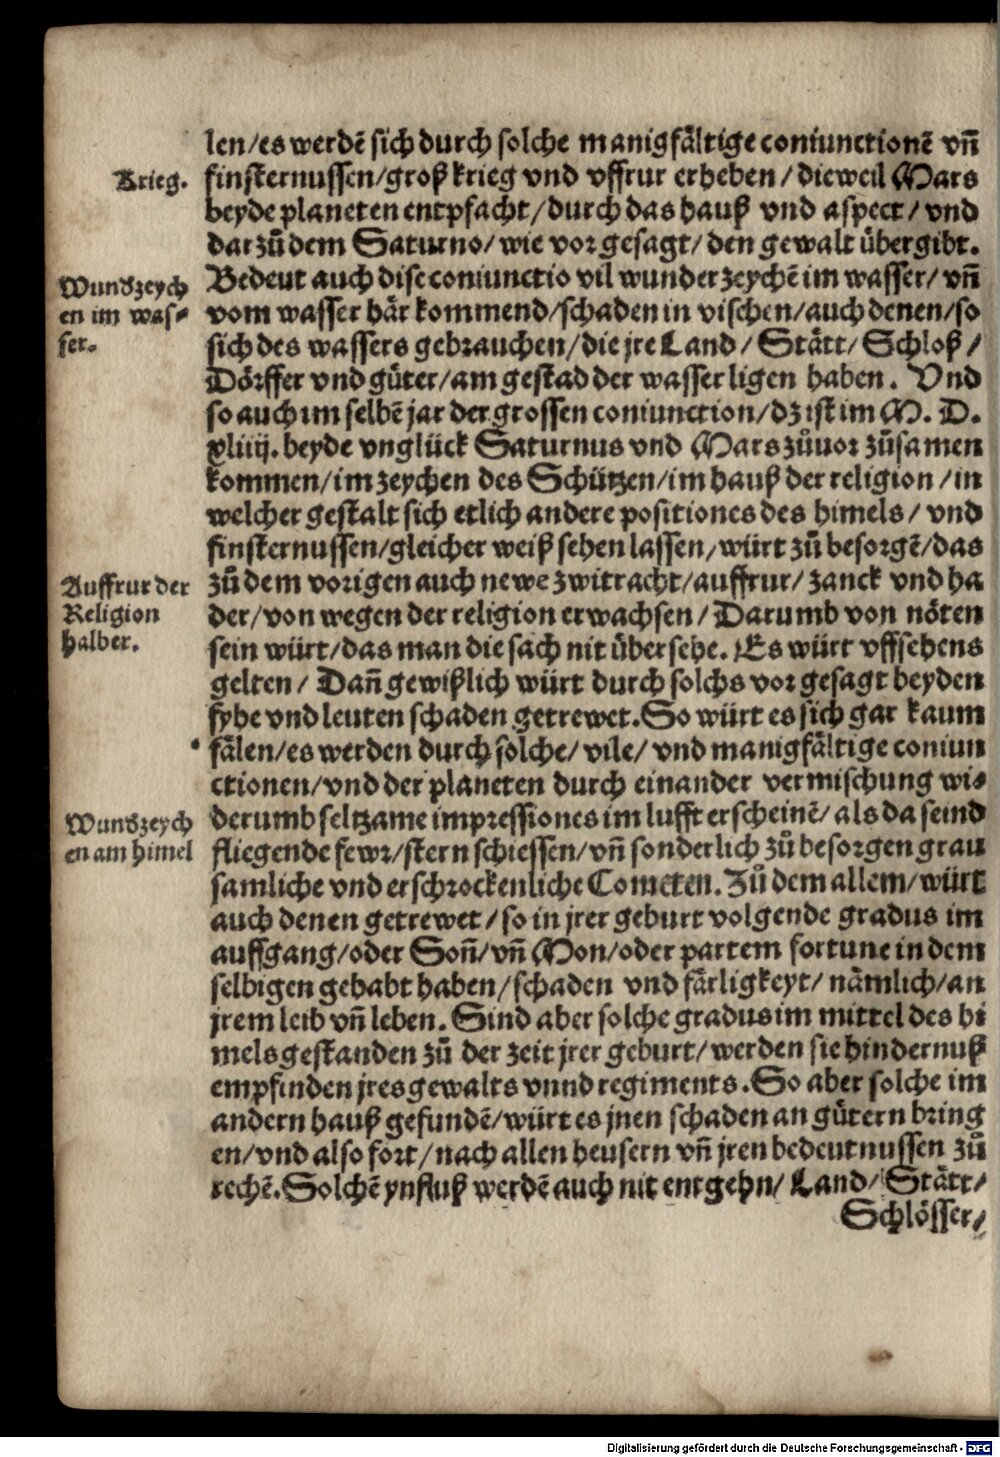 len/es werdẽ sich durch solche manigfåltige coniunctionẽ vñ
Krieg.
finsternussen/groß krieg vnd vffrur erheben/dieweil Mars
beyde planeten entpfacht/durch das hauß vnd aspect/vnd
darzů dem Saturno/wie vorgesagt/den gewalt übergibt.
Wundzeych
en im was⸗
ser.
Bedeut auch dise coniunctio vil wunderzeychẽ im wasser/vñ
vom wasser hår kommend/schaden in vischen/auch denen/so
sich des wassers gebrauchen/die jre Land/Stått/Schloß/
Dörffer vnd güter/am gestad der wasser ligen haben. Vnd
so auch im selbẽ jar der grossen coniunction/dz ist im M. D.
xliiij. beyde vnglück Saturnus vnd Mars zůuor zůsamen
kommen/im zeychen des Schützen/im hauß der religion/in
welcher gestalt sich etlich andere positiones des himels/vnd
finsternussen/gleicher weiß sehen lassen/würt zů besorgẽ/das
Auffrur der
Religion
halber.
zů dem vorigen auch newe zwitracht/auffrur/zanck vnd ha
der/von wegen der religion erwachsen/Darumb von nöten
sein würt/das man die sach nit übersehe. Es würt vffsehens
gelten/Dañ gewißlich würt durch solchs vorgesagt beyden
fyhe vnd leuten schaden getrewet. So würt es sich gar kaum
fålen/es werden durch solche/vile/vnd manigfåltige coniun
ctionen/vnd der planeten durch einander vermischung wi⸗
Wundzeych
en am himel
derumb seltzame impressiones im lufft erscheinẽ/als da seind
fliegende fewr/stern schiessen/vñ sonderlich zů besorgen grau
samliche vnd erschrockenliche Cometen. Zů dem allem/würt
auch denen getrewet/so in jrer geburt volgende gradus im
auffgang/oder Soñ/vñ Mon/oder partem fortune in dem
selbigen gehabt haben/schaden vnd fårligkeyt/nåmlich/an
jrem leib vñ leben. Sind aber solche gradus im mittel des hi
mels gestanden zů der zeit jrer geburt/werden sie hindernuß
empfinden jres gewalts vnnd regiments. So aber solche im
andern hauß gefundẽ/würt es jnen schaden an gütern bring
en/vnd also fort/nach allen heusern vñ jren bedeutnussen zů
rechẽ. Solchẽ ynfluß werdẽ auch nit entgehn/Land/Stått/
Schlösser/
Digitalisierung gefördert durch die Deutsche Forschungsgemeinschaft - DFG